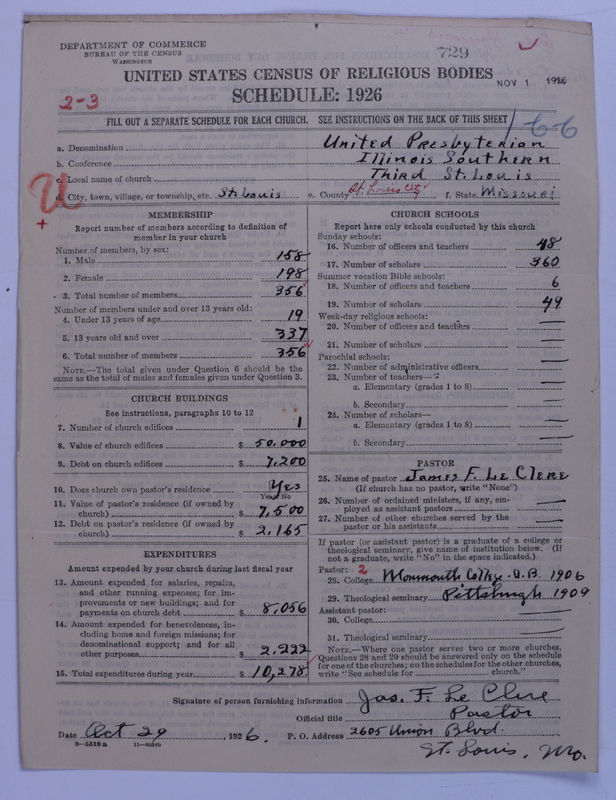 DEPARTMENT OF COMMERCE
BUREAU OF THE CENSUS
WASHINGTON
729
UNITED STATES CENSUS OF RELIGIOUS BODIES
NOV 1 1926
SCHEDULE: 1926
2-3
FILL OUT A SEPARATE SCHEDULE FOR EACH CHURCH. SEE INSTRUCTIONS ON THE BACK OF THIS SHEET
a. Denomination United Presbyterian
b. Conference Illinois Southern
c. Local name of church Third St. Louis
d. City, town, village, or township, etc. St. Louis e. County St. Louis City f. State Missouri
MEMBERSHIP
Report number of members according to definition of
member in your church
Number of members, by sex:
1. Male 158
2. Female 198
3. Total number of members 356
Number of members under and over 13 years old:
4. Under 13 years of age 19
5. 13 years old and over 337
6. Total number of members 356
NOTE.—The total given under Question 6 should be
same as the total of males and females given under Question 3.
CHURCH BUILDINGS
See instructions, paragraphs 10 to 12
7. Number of church edifices 1
8. Value of church edifices $ 50,000
9. Debt on church edifices $ 7,200
10. Does church own pastor's residence Yes
Yes or No
11. Value of pastor's residence (if owned by
church) $ 7,500
12. Debt on pastor's residence (if owned by
church) $ 2,165
EXPENDITURES
Amount expended by your church during last fiscal year
13. Amount expended for salaries, repairs,
and other running expenses; for im-
provements or new buildings; and for
payments on church debt $ 8,056
14. Amount expended for benevolences, in-
cluding home and foreign missions; for
denominational support; and for all
other purposes $ 2,222
15. Total expenditures during year $ 10,278
CHURCH SCHOOLS
Report here only schools conducted by this church
Sunday schools:
16. Number of officers and teachers 48
17. Number of scholars 360
Summer vacation Bible schools:
18. Number of officers and teachers 6
19. Number of scholars 49
Week-day religious schools:
20. Number of officers and teachers —
21. Number of scholars —
Parochial schools:
22. Number of administrative officers —
23. Number of teachers—
a. Elementary (grades 1 to 8) —
b. Secondary —
24. Number of scholars—
a. Elementary (grades 1 to 8) —
b. Secondary —
PASTOR
25. Name of pastor James F. Le Clere
(If church has no pastor, write "None")
26. Number of ordained ministers, if any, em-
ployed as assistant pastors —
27. Number of other churches served by the
pastor or his assistants —
If pastor (or assistant pastor) is a graduate of a college or
theological seminary, give name of institution below. (If
not a graduate, write "No" in the space indicated.)
Pastor: 2
28. College Monmouth College. A.B. 1906
29. Theological seminary Pittsburgh 1909
Assistant pastor:
30. College —
31. Theological seminary —
NOTE.—Where one pastor serves two or more churches,
Questions 28 and 29 should be answered only on the schedule
for one of the churches; on the schedules for the other churches,
write "See schedule for church."
Signature of person furnishing information Jas. F. Le Clere
Official title Pastor
Date Oct 29, 1926. P. O. Address 2605 Union Blvd.
St. Louis, Mo.
8—5518 a